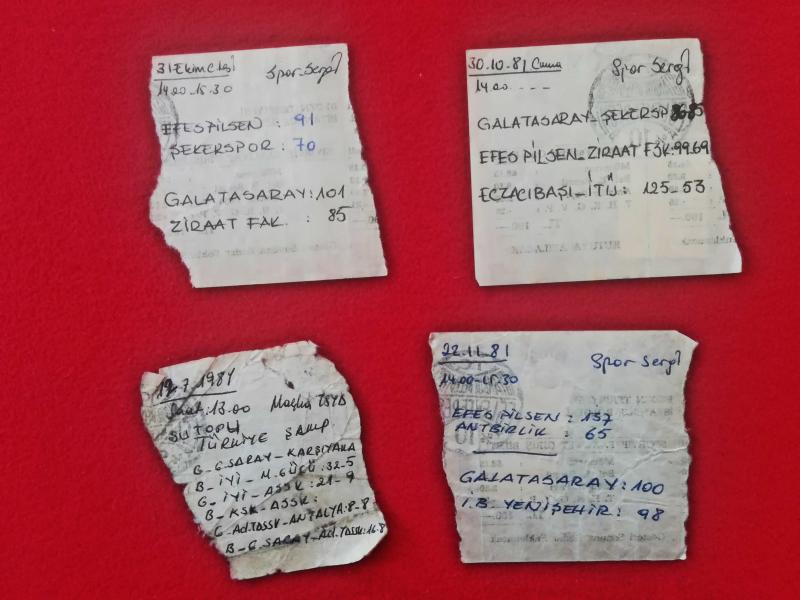 31 Ekim C.tesi
Spor.Sergi
14.00-15.30
EFES PİLSEN : 91
ŞEKERSPOR : 70
GALATASARAY : 101
ZİRAAT FAK. : 85
30.10.81 Cuma
Spor Sergi
14.00 - - - -
GALATASARAY_ŞEKERSP
EFES PİLSEN_ZİRAAT FAK: 99.69
ECZACIBAŞI_İTÜ : 125-53
7.1981
Saat: 13.00
SUTOPU
TÜRKİYE ŞAMP.
B_G.SARAY_KARŞIYAKA
B_İYİ_M.GÜCÜ: 32-5
G_İYİ_ASSK: 21-9
B_KSK_ASSK:
G_Ad.TDSSK_ANTALYA: 8-8
B_G.SARAY_Ad.TDSSK: 16-8
22.11.81
Spor Sergi
14.00-15.30
EFES PİLSEN : 157
ANTBİRLİK : 65
GALATASARAY : 100
İ.B. YENİŞEHİR : 98